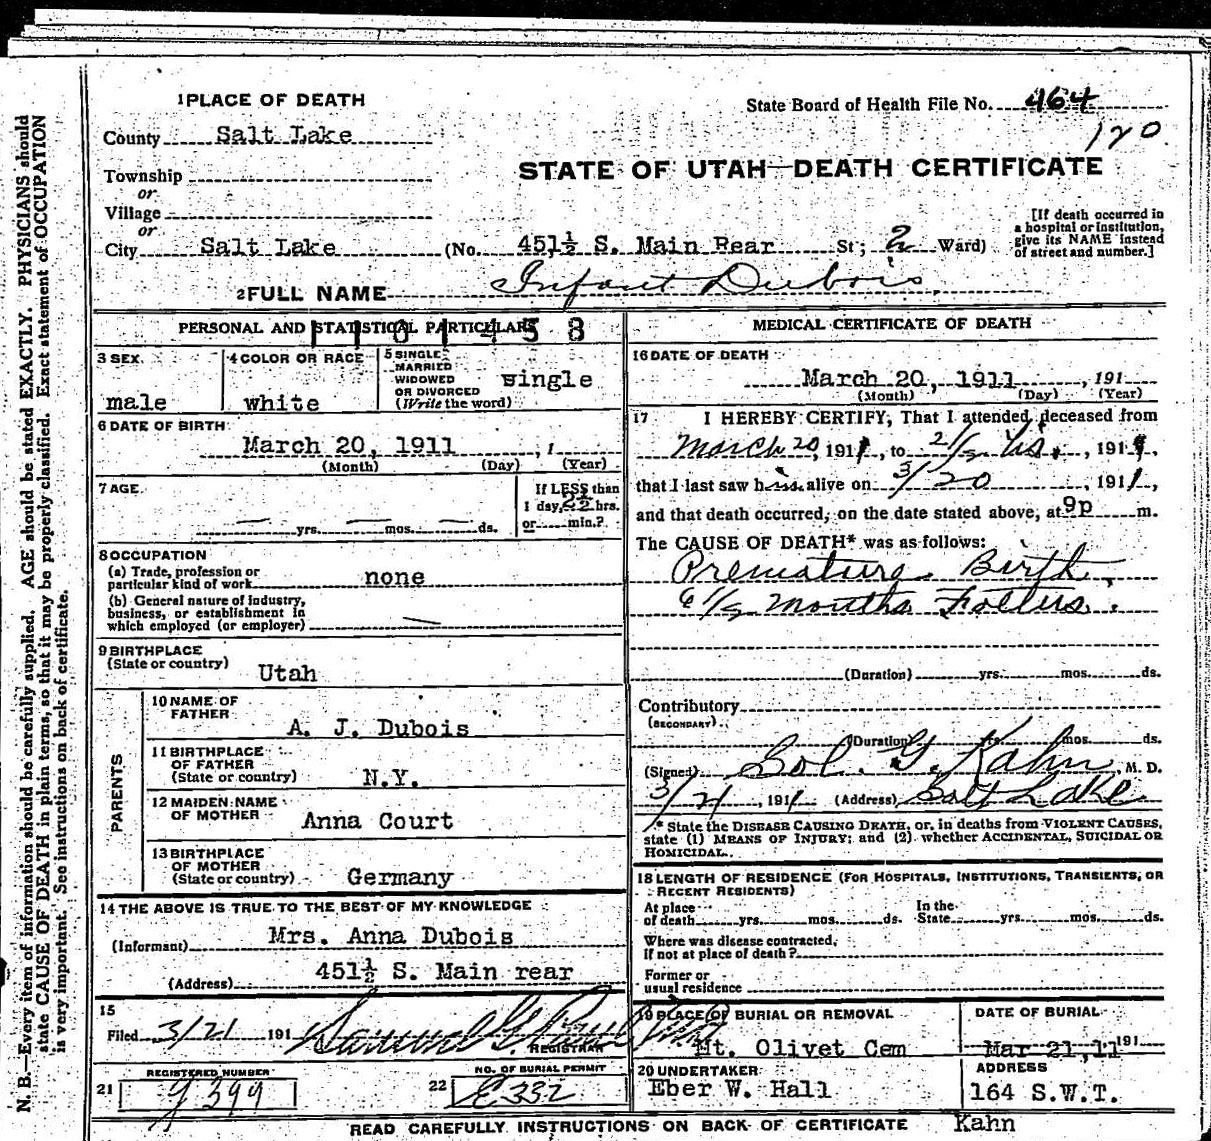 1 PLACE OF DEATH
State Board of Health File No. 464
120
County Salt Lake
STATE OF UTAH—DEATH CERTIFICATE
Township
or
Village
or
City Salt Lake (No. 451½ S. Main Rear St; 2 Ward)
[If death occurred in
a hospital or institution,
give its NAME instead
of street and number.]
2 FULL NAME Infant Dubois
PERSONAL AND STATISTICAL PARTICULARS
3 SEX
male
4 COLOR OR RACE
white
5 SINGLE
MARRIED
WIDOWED
OR DIVORCED
(Write the word)
single
6 DATE OF BIRTH
March 20, 1911, 1
(Month) (Day) (Year)
7 AGE
yrs. mos. ds.
If LESS than
1 day, 2½ hrs.
or min.?
8 OCCUPATION
(a) Trade, profession or
particular kind of work none
(b) General nature of industry,
business, or establishment in
which employed (or employer)
9 BIRTHPLACE
(State or country) Utah
PARENTS
10 NAME OF
FATHER A. J. Dubois
11 BIRTHPLACE
OF FATHER
(State or country) N.Y.
12 MAIDEN NAME
OF MOTHER Anna Court
13 BIRTHPLACE
OF MOTHER
(State or country) Germany
14 THE ABOVE IS TRUE TO THE BEST OF MY KNOWLEDGE
(Informant) Mrs. Anna Dubois
(Address) 451½ S. Main rear
15
Filed 3/21 191
REGISTRAR
REGISTERED NUMBER
21 J 399
NO. OF BURIAL PERMIT
22 E 332
MEDICAL CERTIFICATE OF DEATH
16 DATE OF DEATH
March 20, 1911, 191
(Month) (Day) (Year)
17 I HEREBY CERTIFY, That I attended deceased from
March 20, 1911, to 2 1/2 hs., 191
that I last saw him alive on 3/20, 1911,
and that death occurred, on the date stated above, at 9p m.
The CAUSE OF DEATH* was as follows:
Premature Birth,
6 1/2 months
(Duration) yrs. mos. ds.
Contributory
(SECONDARY)
(Duration) yrs. mos. ds.
(Signed) Sol. G. Kahn, M. D.
3/21, 1911 (Address) Salt Lake
* State the DISEASE CAUSING DEATH, or, in deaths from VIOLENT CAUSES,
state (1) MEANS OF INJURY; and (2) whether ACCIDENTAL, SUICIDAL OR
HOMICIDAL.
18 LENGTH OF RESIDENCE (FOR HOSPITALS, INSTITUTIONS, TRANSIENTS, OR
RECENT RESIDENTS)
At place
of death yrs. mos. ds.
In the
State yrs. mos. ds.
Where was disease contracted,
if not at place of death?
Former or
usual residence
19 PLACE OF BURIAL OR REMOVAL
Mt. Olivet Cem
DATE OF BURIAL
Mar 21, 11 191
20 UNDERTAKER
Eber W. Hall
ADDRESS
164 S.W.T.
READ CAREFULLY INSTRUCTIONS ON BACK OF CERTIFICATE Kahn
N. B.—Every item of information should be carefully supplied. AGE should be stated EXACTLY. PHYSICIANS should
state CAUSE OF DEATH in plain terms, so that it may be properly classified. Exact statement of OCCUPATION
is very important. See instructions on back of certificate.